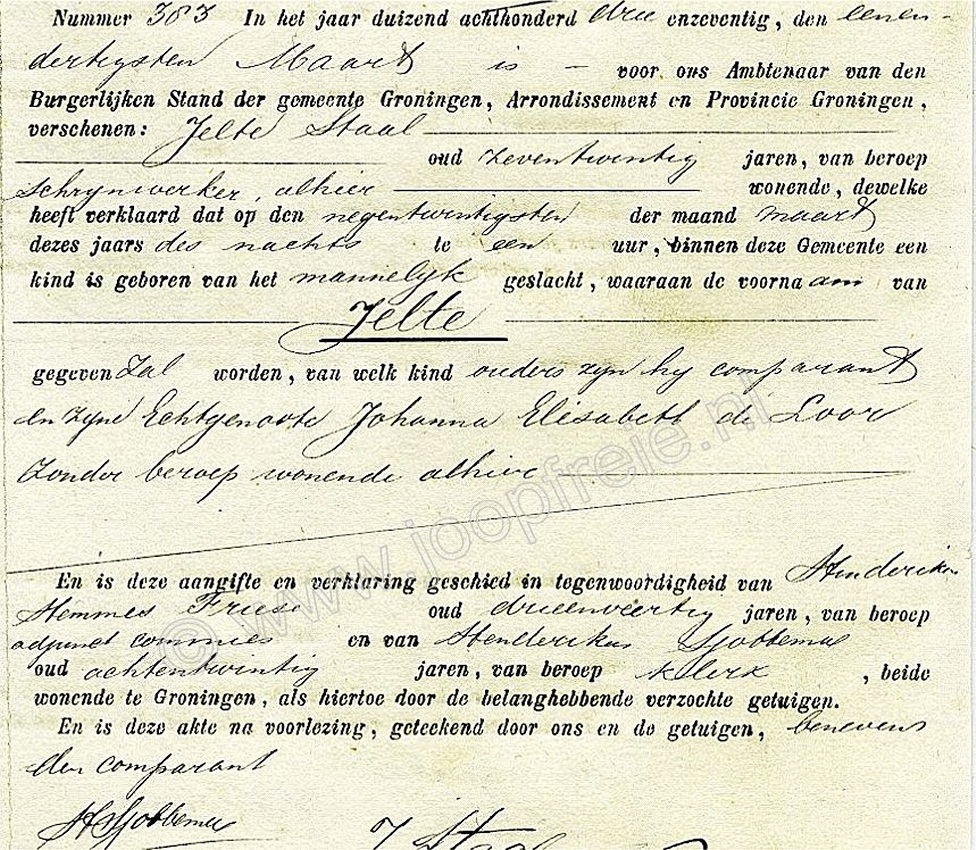 Nummer 383 In het jaar duizend achthonderd drie enzeventig, den eenen-
dertigsten Maart is — voor ons Ambtenaar van den
Burgerlijken Stand der gemeente Groningen, Arrondissement en Provincie Groningen,
verschenen: Jelte Staal
oud zeventwintig jaren, van beroep
schrijnwerker, alhier wonende, dewelke
heeft verklaard dat op den negentwintigsten der maand maart
dezes jaars des nachts te een uur, binnen deze Gemeente een
kind is geboren van het mannelijk geslacht, waaraan de voornaam van
Jelte
gegeven zal worden, van welk kind ouders zijn hij comparant
en zijne Echtgenoote Johanna Elisabeth de Loor
zonder beroep wonende alhier
© www.joopfreie.nl
En is deze aangifte en verklaring geschied in tegenwoordigheid van Henderikus
Hemmes Friese oud drieenveertig jaren, van beroep
adjunct commies en van Henderikus Sjobbema
oud achtentwintig jaren, van beroep klerk, beide
wonende te Groningen, als hiertoe door de belanghebbende verzochte getuigen.
En is deze akte na voorlezing, geteekend door ons en de getuigen, benevens
den comparant
HSjobbema
J Staal